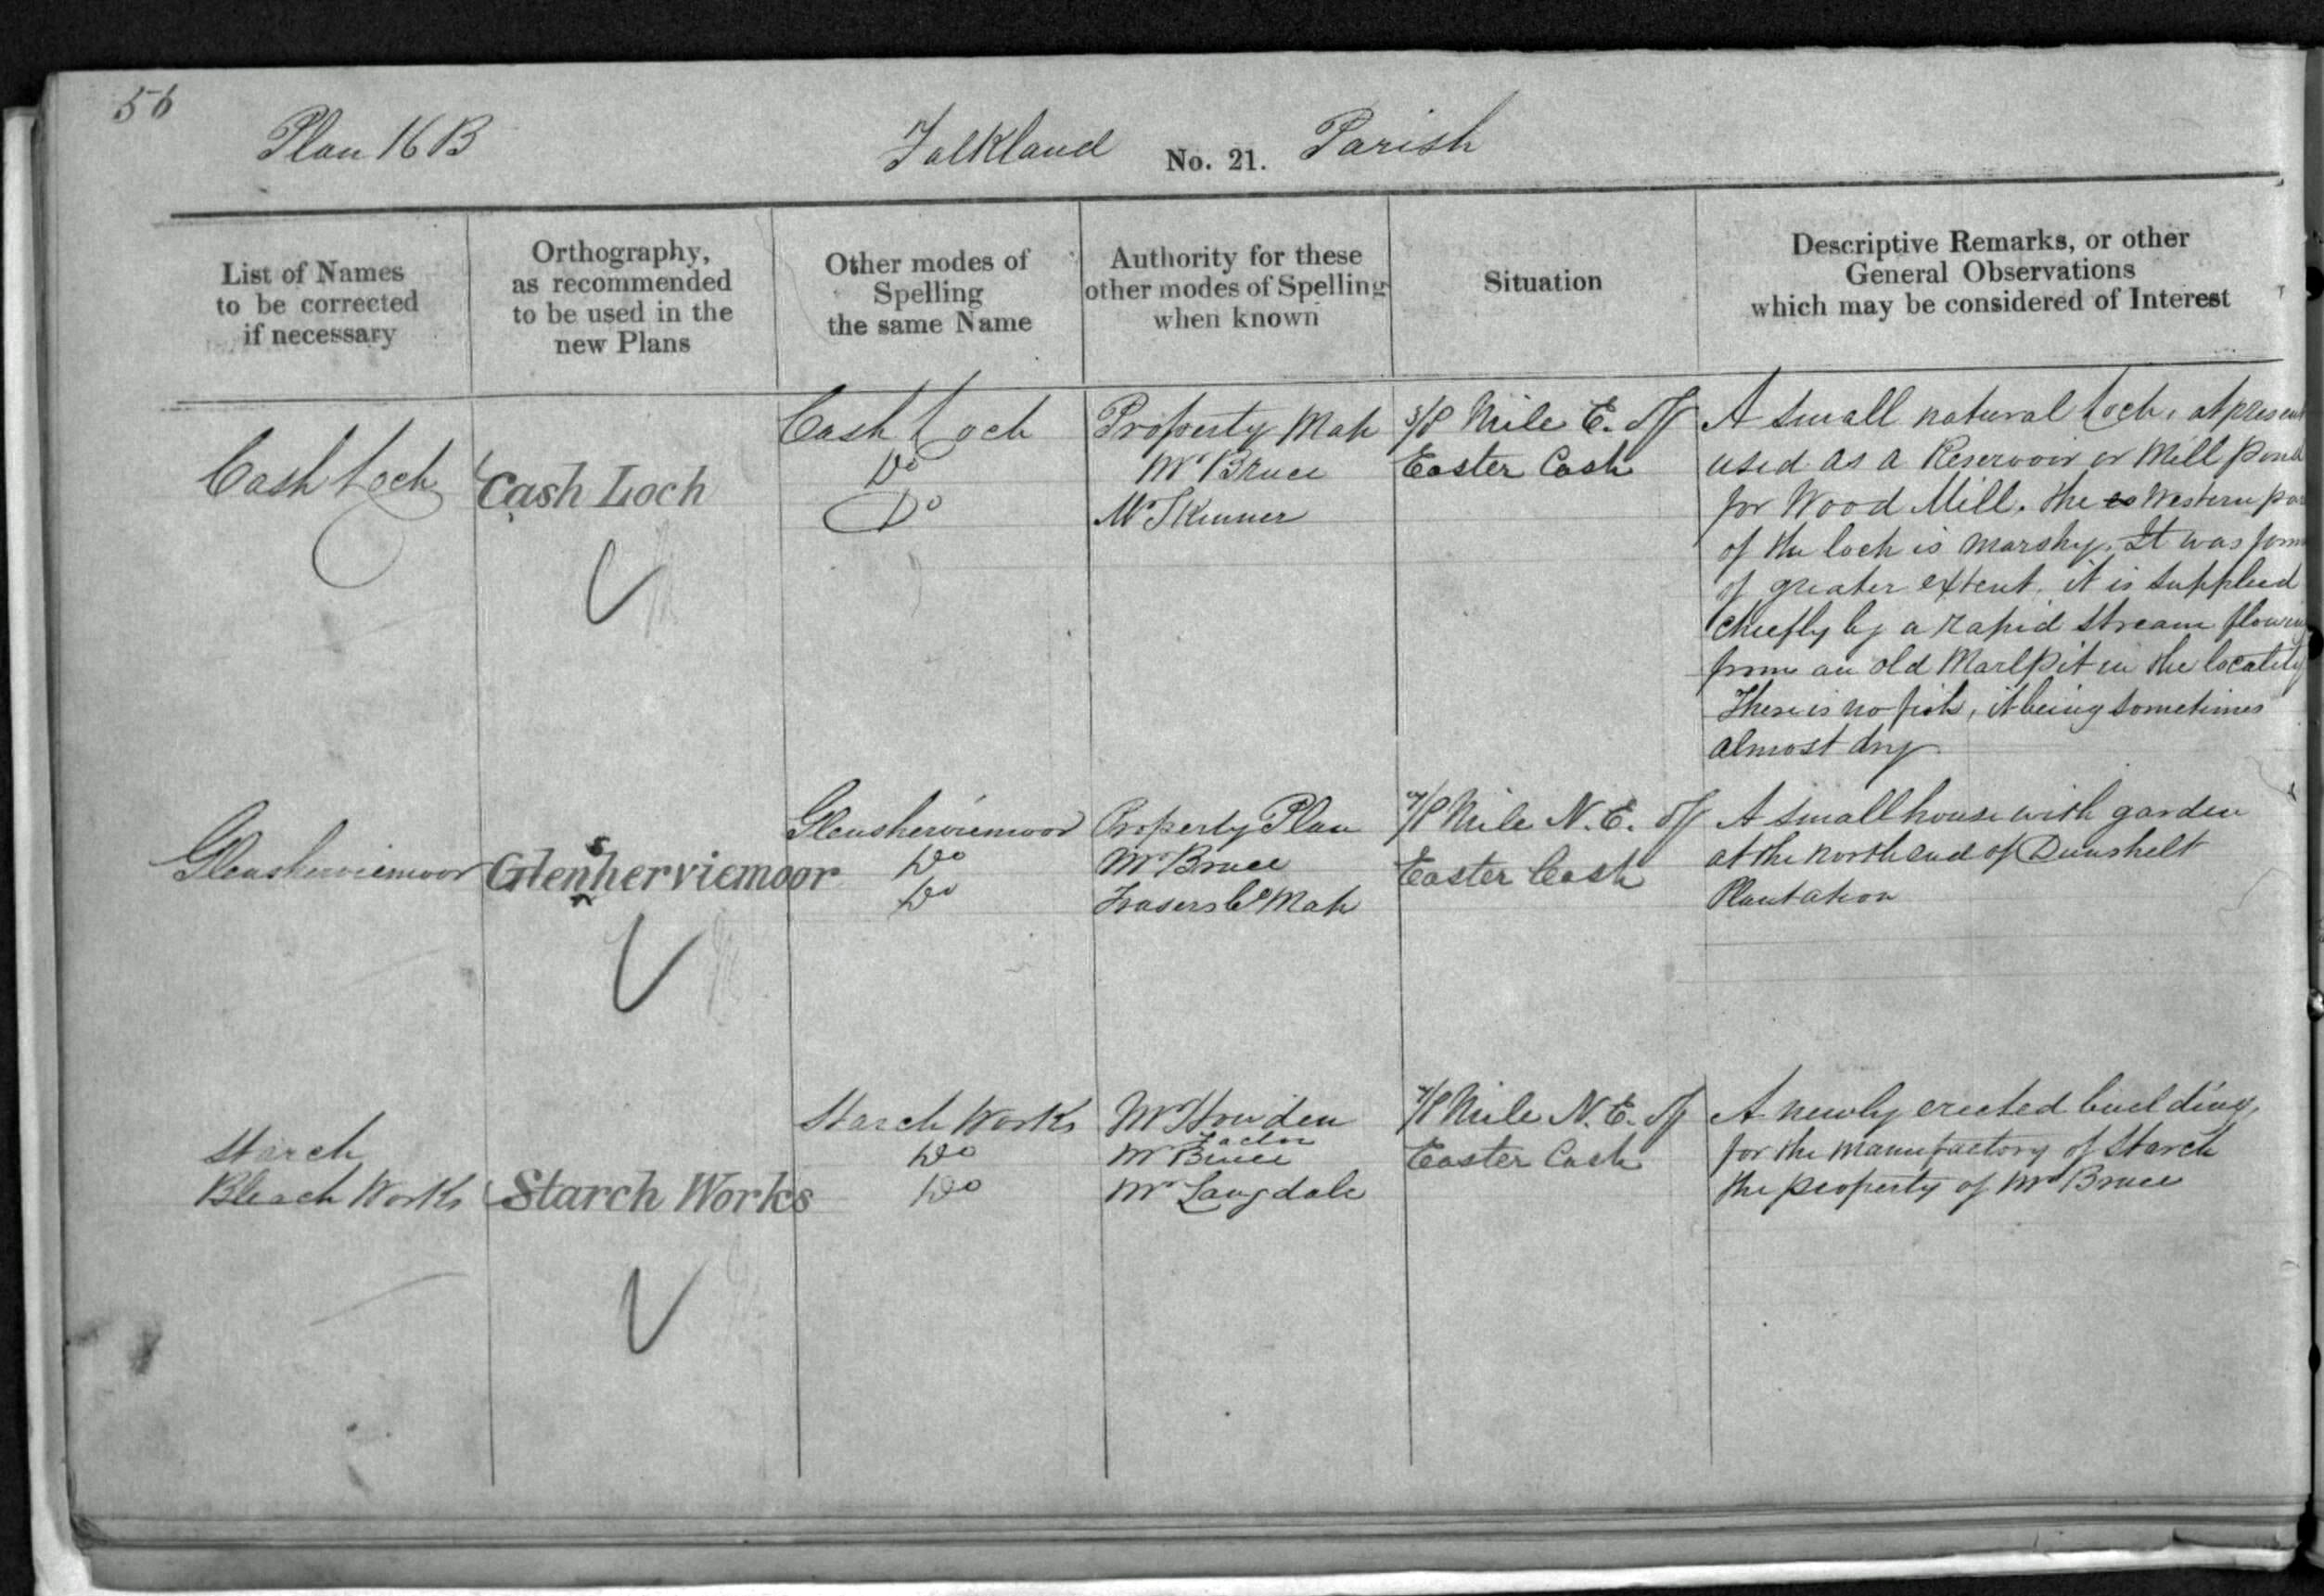 56
Plan 16B Falkland No. 21. Parish
List of Names
to be corrected
if necessary
Orthography,
as recommended
to be used in the
new Plans
Other modes of
Spelling
the same Name
Authority for these
other modes of Spelling
when known
Situation
Descriptive Remarks, or other
General Observations
which may be considered of Interest
Cash Loch
Cash Loch
Cash Loch
Do
Do
Property Map
Mr Bruce
Mr Skinner
3/8 Mile E. of
Easter Cash
A small natural Loch, at present
used as a Reservoir or Mill pond
for Wood Mill. the es Western
of the loch is marshy. It was
of greater extent, it is supplied
chiefly by a rapid stream
from an old Marlpit in the locality
There is no fish, it being sometimes
almost dry
Glensherviemoor
Glensherviemoor
Glensherviemoor
Do
Do
Property Plan
Mr Bruce
Frasers Co Map
7/8 Mile N.E. of
Easter Cash
A small house with garden
at the north end of Dunshelt
Plantation
Starch
Bleach Works
Starch Works
Starch Works
Do
Do
Mr Howden
Factor
Mr Bruce
Mr Langdale
7/8 Mile N.E. of
Easter Cash
A newly erected building,
for the manufactory of Starch
the property of Mr Bruce